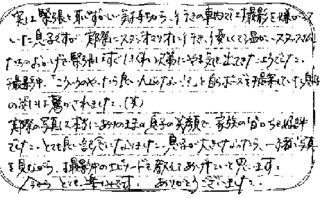 実は緊張と恥ずかしい気持ちから、行きの車内でも撮影を嫌がって
いた息子ですが、実際にスタジオマリオに行くと、優しくて面白いスタッフさん
たちのおかげで緊張もすぐにほぐれ次第にやる気も出てきたようでした。
撮影中「こういうのやったら良いんじゃない!?」と自らポーズを提案していた息子
の姿にも驚かされました。(笑)
実際の写真は本当にありのままの息子の笑顔で、家族の
でした。とても良い記念になりました。息子が大きくなったら、一緒に写真
を見ながら、撮影中のエピソードを教えてあげたいと思います。
とても幸せです。ありがとうございました。